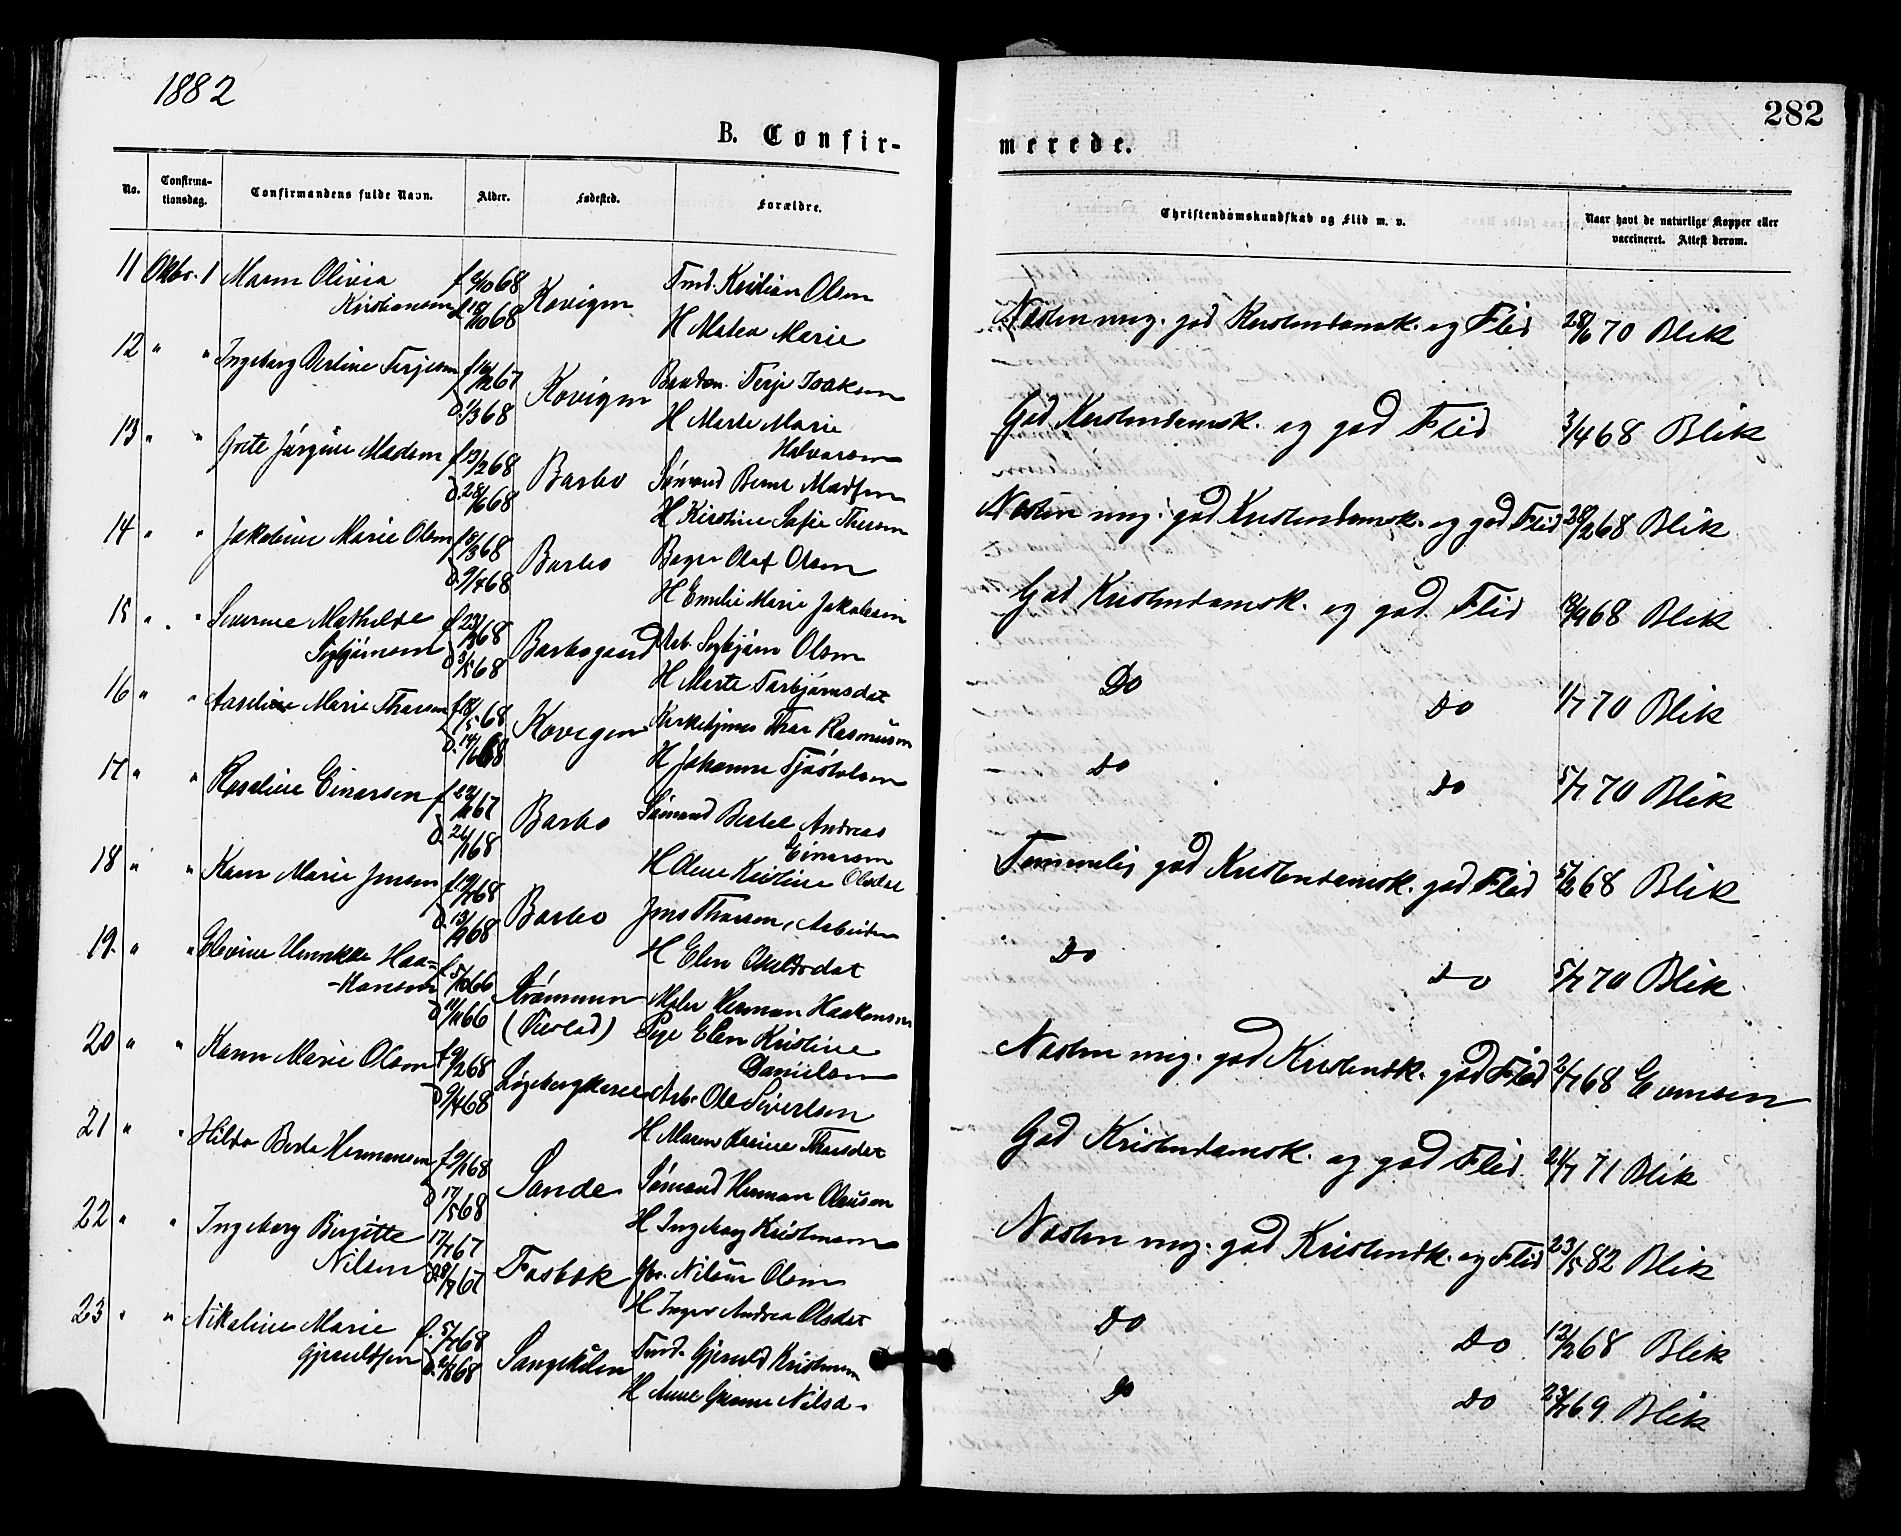 1882
282
B. Confir-
merede.
No.
Confirma-
tionsdag.
Confirmandens fulde Navn.
Alder.
Fødested.
Forældre.
Christendomskundskab og Flid m. v.
Naar havt de naturlige Kopper eller
vaccineret. Attest derom.
11 Oktbr. 1 Maren Olivia
Kristiansen
Kovigen
Tmd. Kristian Olsen
H Matea Marie
Næsten mig. god Kristendomsk. og Flid 28/6 70 Blik
12 " " Ingeborg Terjesen
d. 1/3 68
Kovigen
Terje Isaksen
H Marte Marie
Halvorsen
God Kristendomsk. og god Flid 3/4 68 Blik
13 " " Grete Jørgine Madsen
Barbo
Sømand Bernt Madsen
H Kirstine Sofie
Næsten mig. god Kristendomsk. og god Flid 28/2 68 Blik
14 " " Jakobine Marie Olsen
d. 9/4 68
Barbo
Olaf Olsen
H Emilie Marie Jakobsen
God Kristendomsk. og god Flid 68 Blik
15 " " Severine Mathilde
Sigbjørnsen
d. 3/5 68
Barbogaard
Arb. Sigbjørn Olsen
H Marte Torbjørnsdat
Do Do 1/7 70 Blik
16 " " Aaseline Marie Thorsen
d. 14/6 68
Kovigen
Kirketjener Thor Rasmusen
H Johanne Tjøstolsen
Do Do 5/7 70 Blik
17 " " Roseline Einersen
Barbo
Sømand Bertel Andreas
Einersen
H Kristine Olsdat
Temmelig god Kristendomsk. god Flid 68 Blik
18 " " Karen Marie Jensen
Barbo
Jens Thorsen, Arbeider
H Elen
Do Do 5/7 70 Blik
19 " " Henrikke Haa=
-konsen
f. 5/10 66
d. 11/11 66
Strømmen
Maler Herman Haakonsen
Pige Elen Kristine
Danielsen
Næsten mig. god Kristendk. god Flid 68 Evensen
20 " " Karen Marie Olsen
f. 9/2 68
d. 9/4 68
Arb. Ole Sivertsen
H Maren Karine Thorsdat
God Kristendomsk. og god Flid. 71 Blik
21 " " Hilda Berta Hermansen
d. 17/5 68
Sande
Sømand Herman Olausen
H Ingeborg Kristensen
Næsten mig. god Kristendk. og Flid 23/5 82 Blik
22 " " Ingeborg Birgitte
Nilsen
17/7 67
Fosbæk
Nilsen Olsen
H Inger Andrea Olsdat
Do Do 68 Blik
23 " " Nikoline Marie
Gjeruldsen
f. 5/7 68
Songekilen
Tmd. Gjeruld Kristensen
H Anne Nilsd.
Do Do 69 Blik